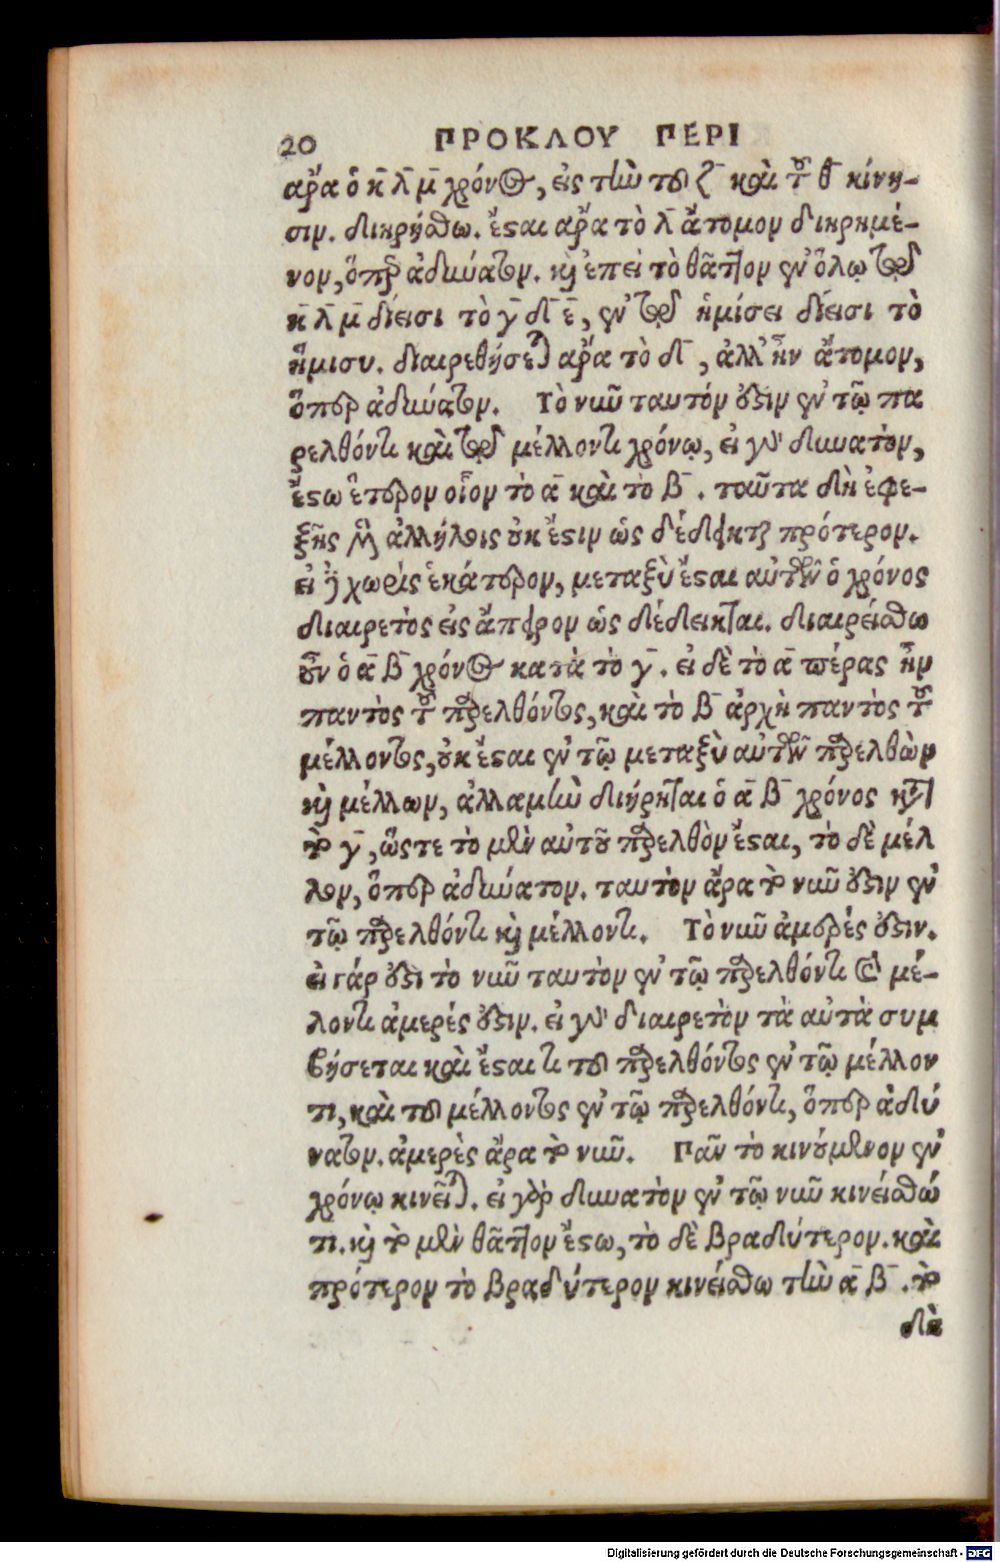 20 ΠΡΟΚΛΟΥ ΠΕΡΙ
ἄρα ὁ κ̄ λ̄ μ̄ χρόνος, εἰς τὴν τοῦ ζ̄ καὶ τοῦ θ̄ κίνη-
σιν. διῃρήσθω. ἔσαι ἄρα τὸ λ̄ ἄτομον διῃρημέ-
νον, ὅπερ ἀδύνατον. καὶ ἐπεὶ τὸ θᾶττον ἐν ὅλῳ τῷ
κ̄ λ̄ μ̄ δίεισι τὸ γ̄ δ̄ ε̄, ἐν τῷ ἡμίσει δίεισι τὸ
ἥμισυ. διαιρεθήσεται ἄρα τὸ δ̄, ἀλλ' ἦν ἄτομον,
ὅπερ ἀδύνατον. Τὸ νῦν ταυτόν ὅστιν ἐν τῷ πα
ρελθόντι καὶ τῷ μέλλοντι χρόνῳ, εἰ γὰρ δυνατὸν,
ἔστω ἕτερον οἷον τὸ ᾱ καὶ τὸ β̄. ταῦτα δὴ ἐφε-
ξῆς μὲν ἀλλήλοις οὐκ ἔστιν ὡς δέδεικται πρότερον.
εἰ δὲ χωρὶς ἑκάτερον, μεταξὺ ἔσται αὐτῶν ὁ χρόνος
διαιρετὸς εἰς ἄπειρον ὡς δέδεικται. διαιρείσθω
οὖν ὁ ᾱ β̄ χρόνος κατὰ τὸ γ̄. εἰ δὲ τὸ ᾱ πέρας ἦν
παντὸς τοῦ παρελθόντος, καὶ τὸ β̄ ἀρχὴ παντὸς τοῦ
μέλλοντος, οὐκ ἔσται ἐν τῷ μεταξὺ αὐτῶν παρελθὼν
καὶ μέλλων, ἀλλαμὴν διῄρηται ὁ ᾱ β̄ χρόνος κατὰ
τὸ γ̄, ὥστε τὸ μὲν αὐτοῦ παρελθὸν ἔσται, τὸ δὲ μέλ
λον, ὅπερ ἀδύνατον. ταυτὸν ἄρα τὸ νῦν ὅστιν ἐν
τῷ παρελθόντι καὶ μέλλοντι. Τὸ νῦν ἀμερές ὅστιν.
εἰ γάρ ὅστι τὸ νῦν ταυτὸν ἐν τῷ παρελθόντι καὶ μέ-
λοντι ἀμερές ὅστιν. εἰ γὰρ διαιρετὸν τὰ αὐτὰ συμ
βήσεται καὶ ἔσται τι τοῦ παρελθόντος ἐν τῷ μέλλον
τι, καὶ τοῦ μέλλοντος ἐν τῷ παρελθόντι, ὅπερ ἀδύ
νατον. ἀμερὲς ἄρα τὸ νῦν. Πᾶν τὸ κινούμενον ἐν
χρόνῳ κινεῖται. εἰ γὰρ δυνατὸν ἐν τῷ νῦν κινείσθώ
τι. καὶ τὸ μὲν θᾶττον ἔστω, τὸ δὲ βραδύτερον. καὶ
πρότερον τὸ βραδύτερον κινείσθω τὴν ᾱ β̄. τὸ
δὲ
Digitalisierung gefördert durch die Deutsche Forschungsgemeinschaft - DFG